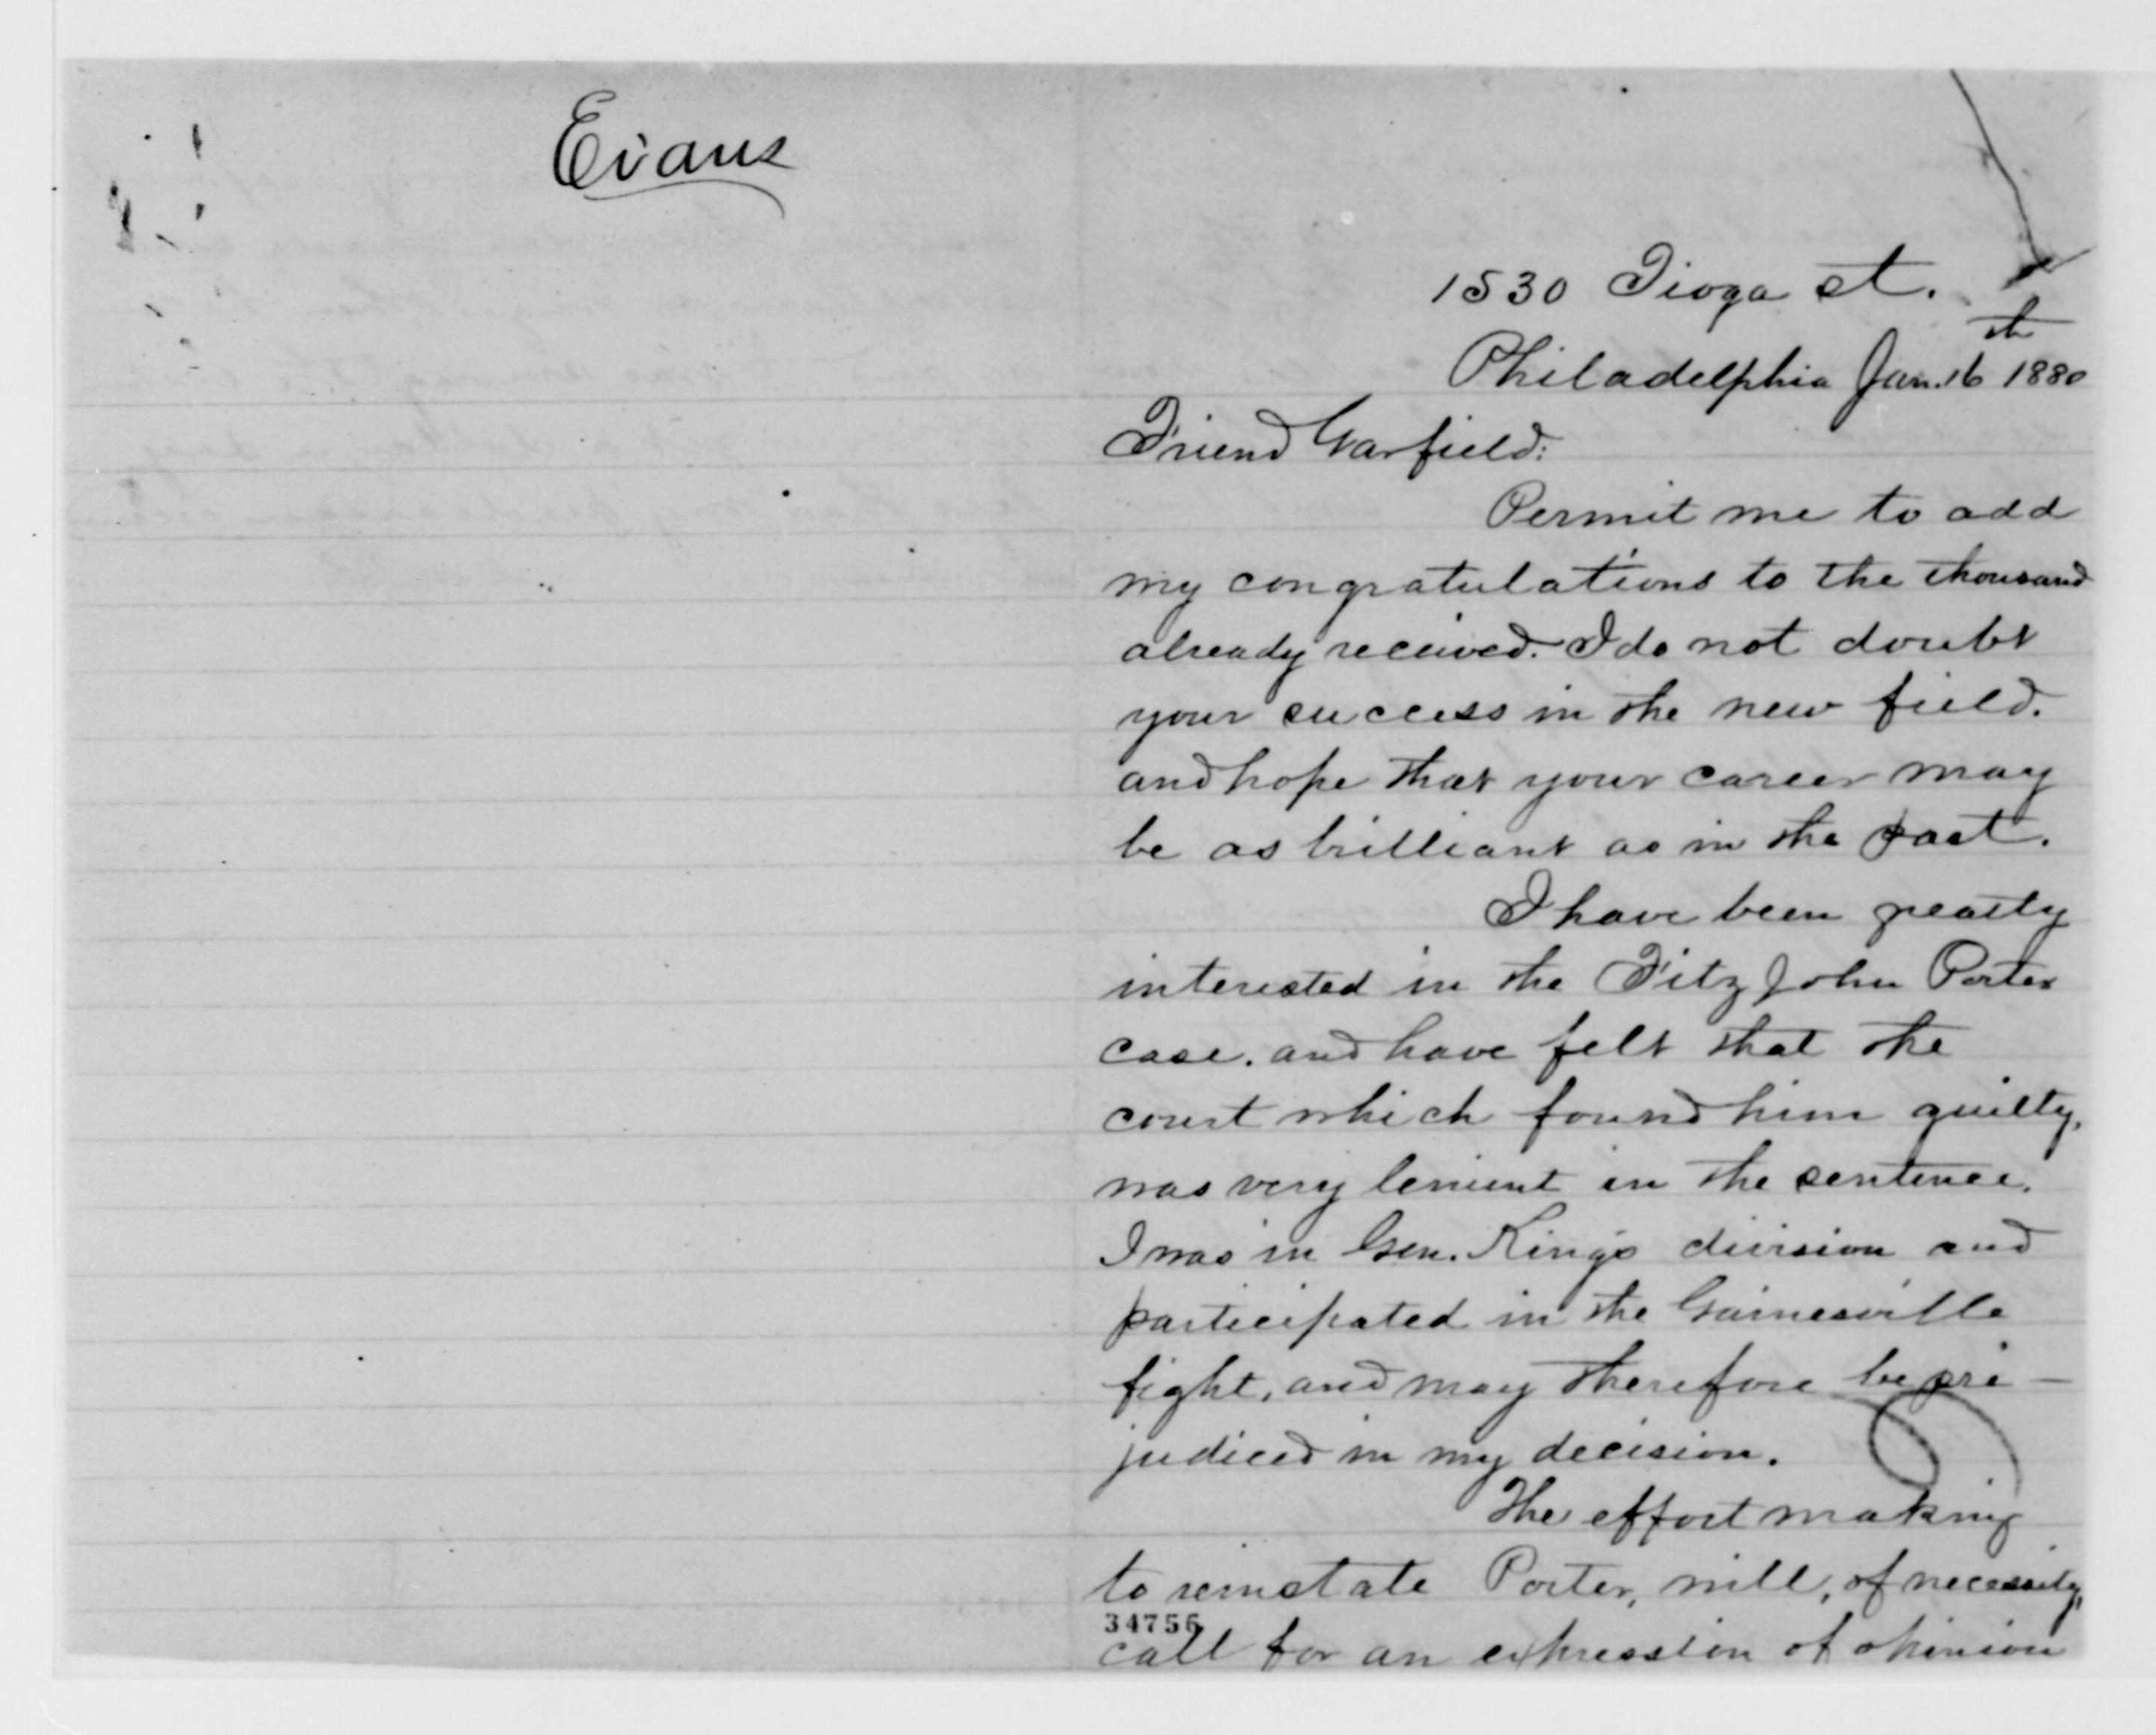 Evans
1530 Tioga St.
Philadelphia Jan. 16th 1880
Friend Garfield:
Permit me to add
my congratulations to the thousand
already received. I do not doubt
your success in the new field.
and hope that your career may
be as brilliant as in the past.
I have been greatly
interested in the Fitz John Porter
case. and have felt that the
court which found him guilty,
was very lenient in the sentence.
I was in Gen. King's division and
participated in the Gainesville
fight, and may therefore be pre-
judiced in my decision.
The effort making
to reinstate Porter, will, of necessity,
34756
call for an expression of opinion